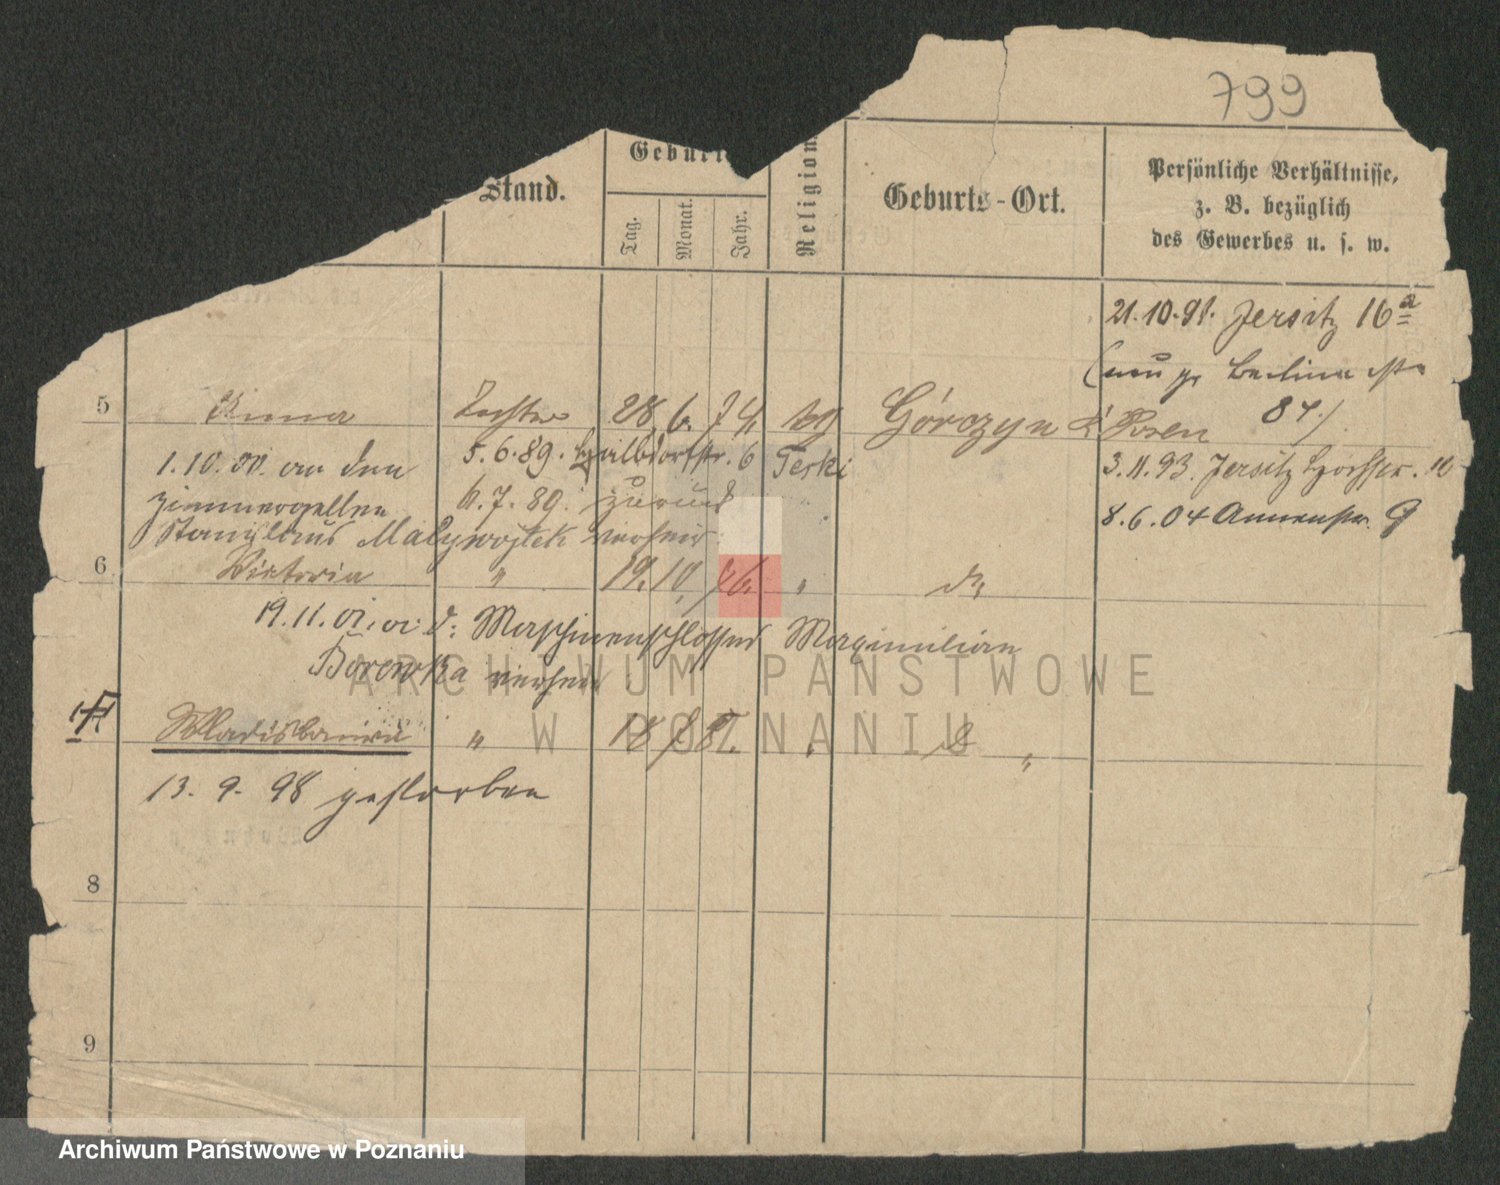 799
Stand.
Geburts
Tag.
Monat.
Jahr.
Religion.
Geburts-Ort.
Persönliche Verhältnisse,
z. B. bezüglich
des Gewerbes u. s. w.
21.10.91. Jersitz 16a
Berliner
5 Anna Tochter 28. 6. 74. Górczyn Posen 87.)
1.10.00. an den 5.6.89. Halbdorfstr. 6 3.11.93. Jersitz
Zimmergesellen 11.7.89. zurück 8.6.04 Annenstr. 9
Stanislaus Maływojtek verheir.
6 Viktoria " 19. 10. 76. "
19.11.01. d. Maschinenschlosser Maximilian
Borowska verheir.
Wladislawa " 18 78. "
13. 9. 98 gestorben
8
9
ARCHIWUM PAŃSTWOWE
W POZNANIU
Archiwum Państwowe w Poznaniu